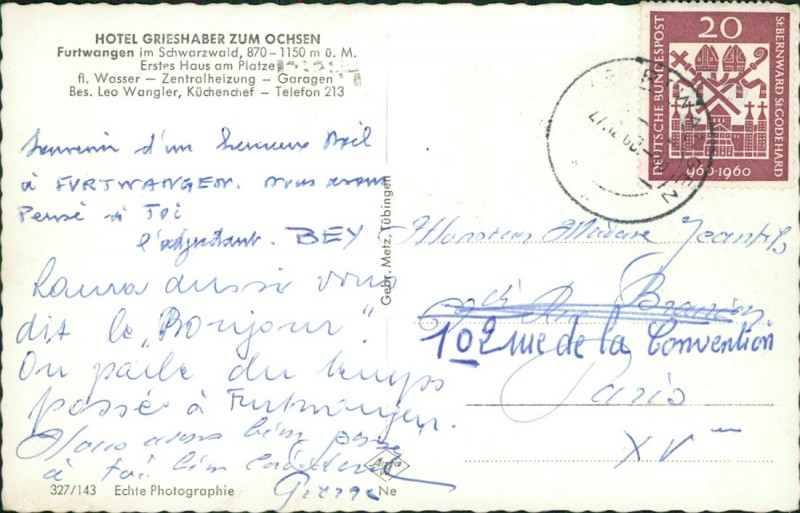 HOTEL GRIESHABER ZUM OCHSEN
Furtwangen im Schwarzwald, 870–1150 m ü. M.
Erstes Haus am Platze
fl. Wasser – Zentralheizung – Garagen
Bes. Leo Wangler, Küchenchef – Telefon 213
DEUTSCHE BUNDESPOST
20
St. BERNWARD St. GODEHARD
960·1960
Souvenir d'un
à FURTWANGEN. Nous avons
Pensé à Toi
l'adjudant. BEY
Laura aussi vous
dit le „Bonjour".
On parle du temps
passé à Furtwangen.
Nous avons bien pensé
à toi bien
Pierre
Gebr. Metz, Tübingen
Monsieur Madame
102 rue de la Convention
Paris
XV
327/143 Echte Photographie Ne